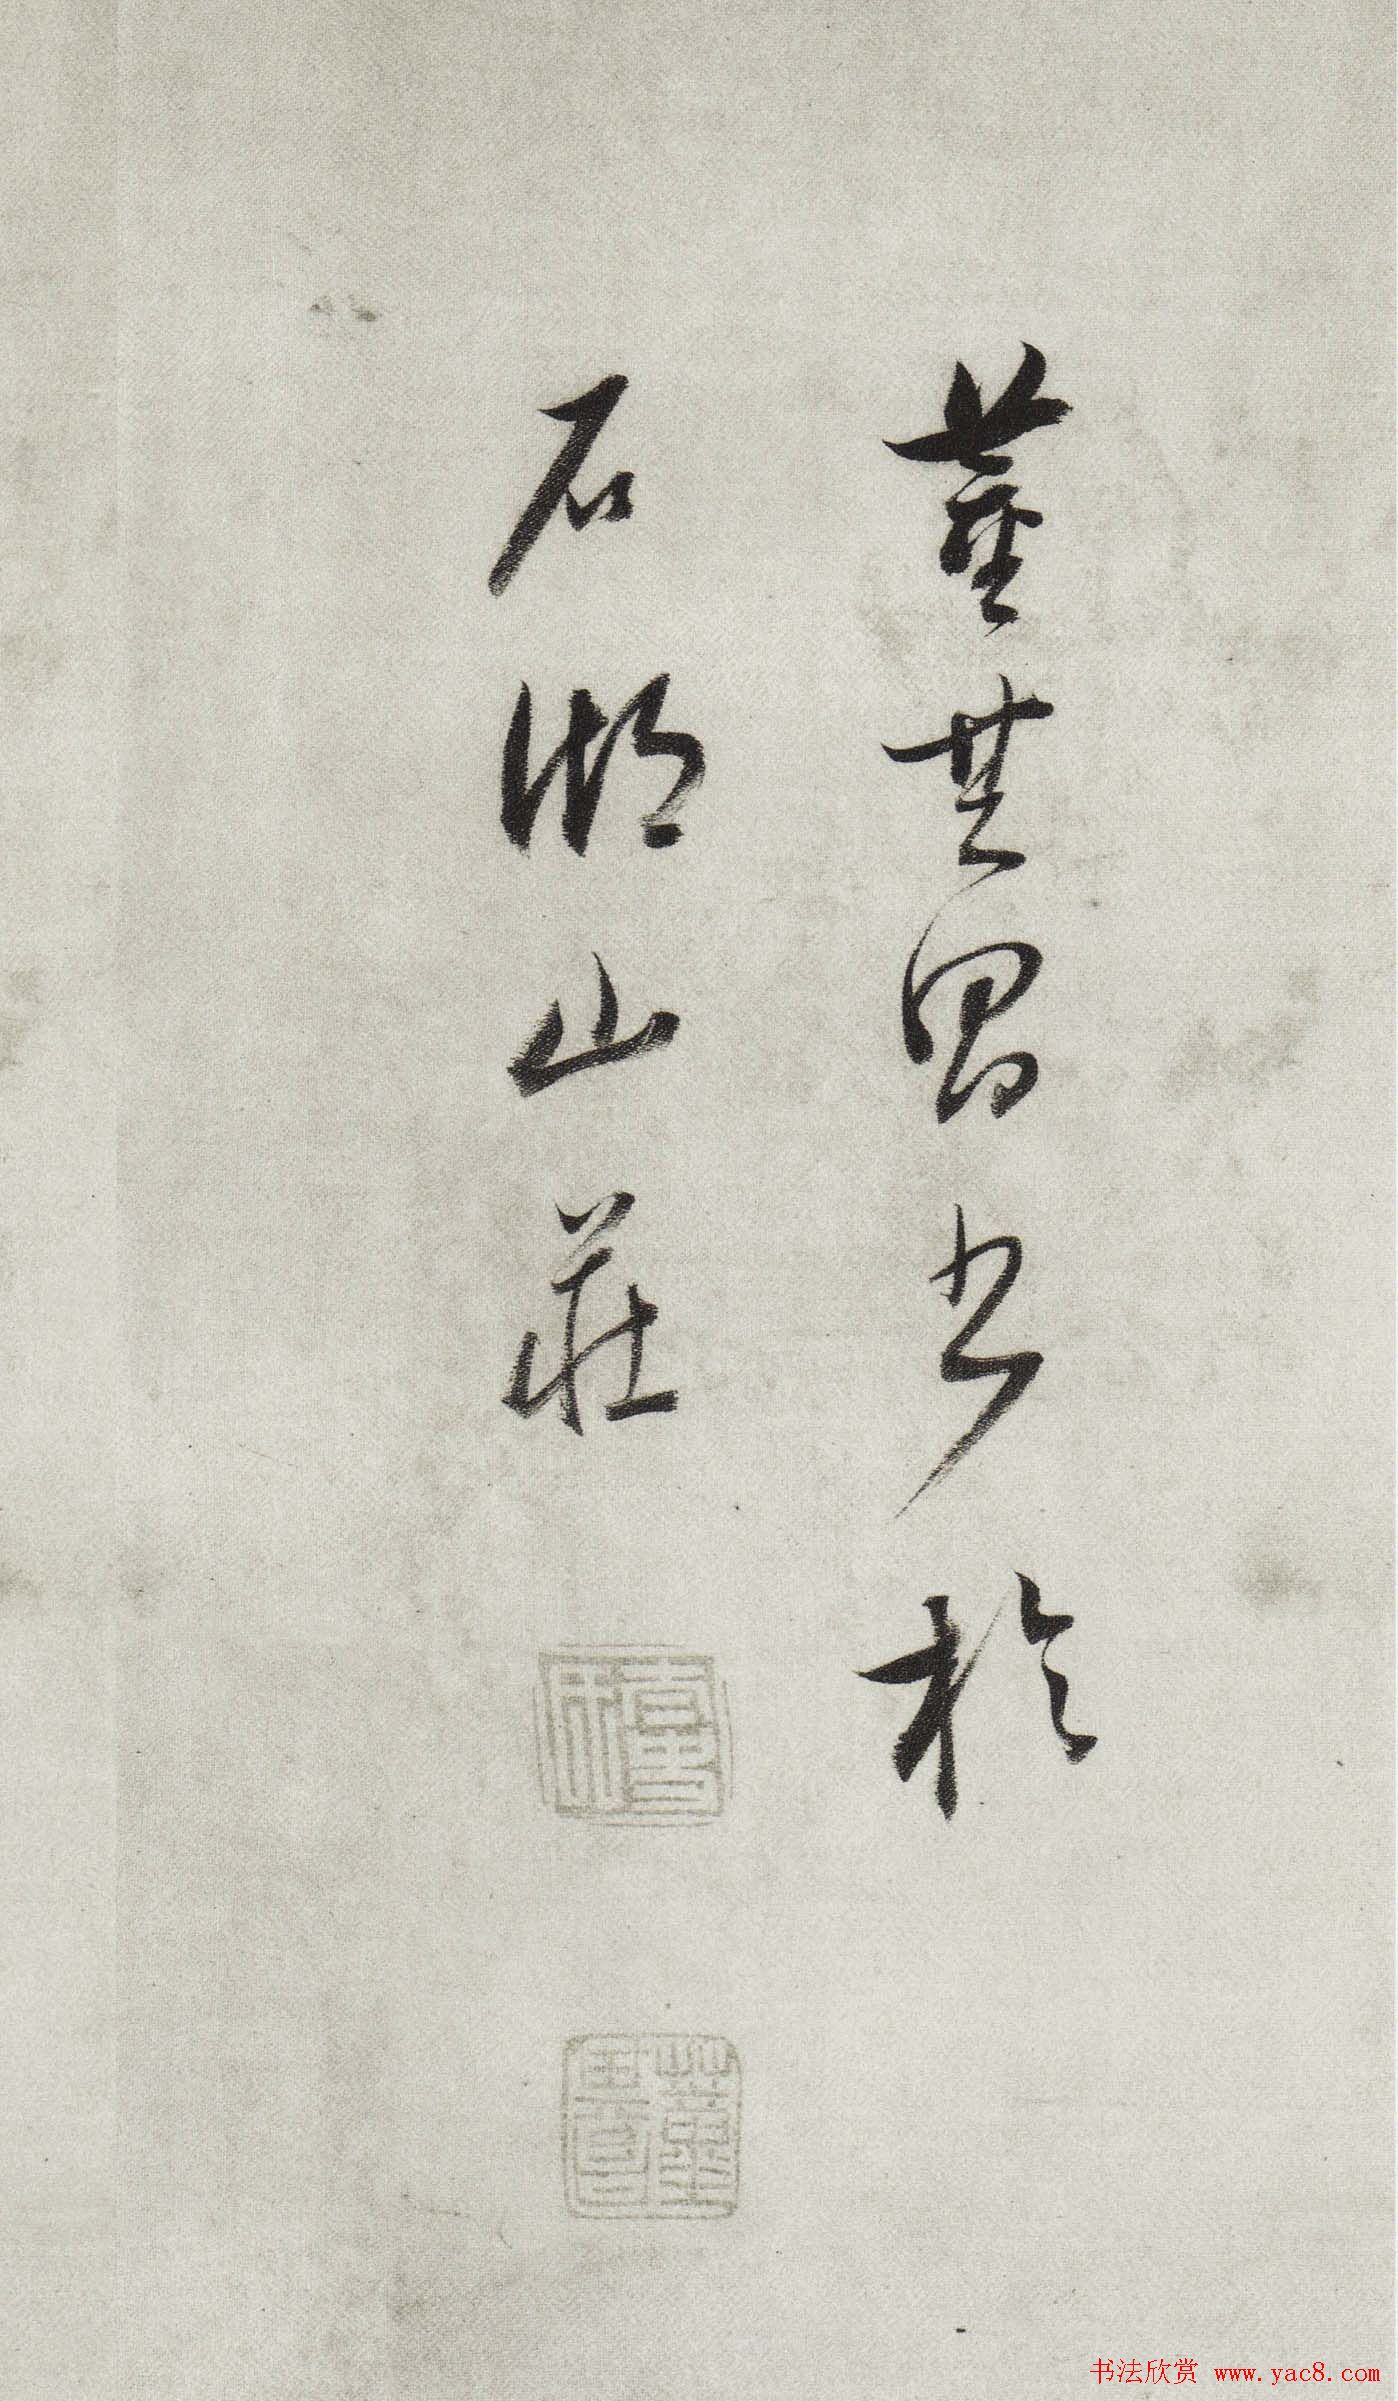 董其昌書於
石湖山莊
董玄宰
书法欣赏 www.yac8.com